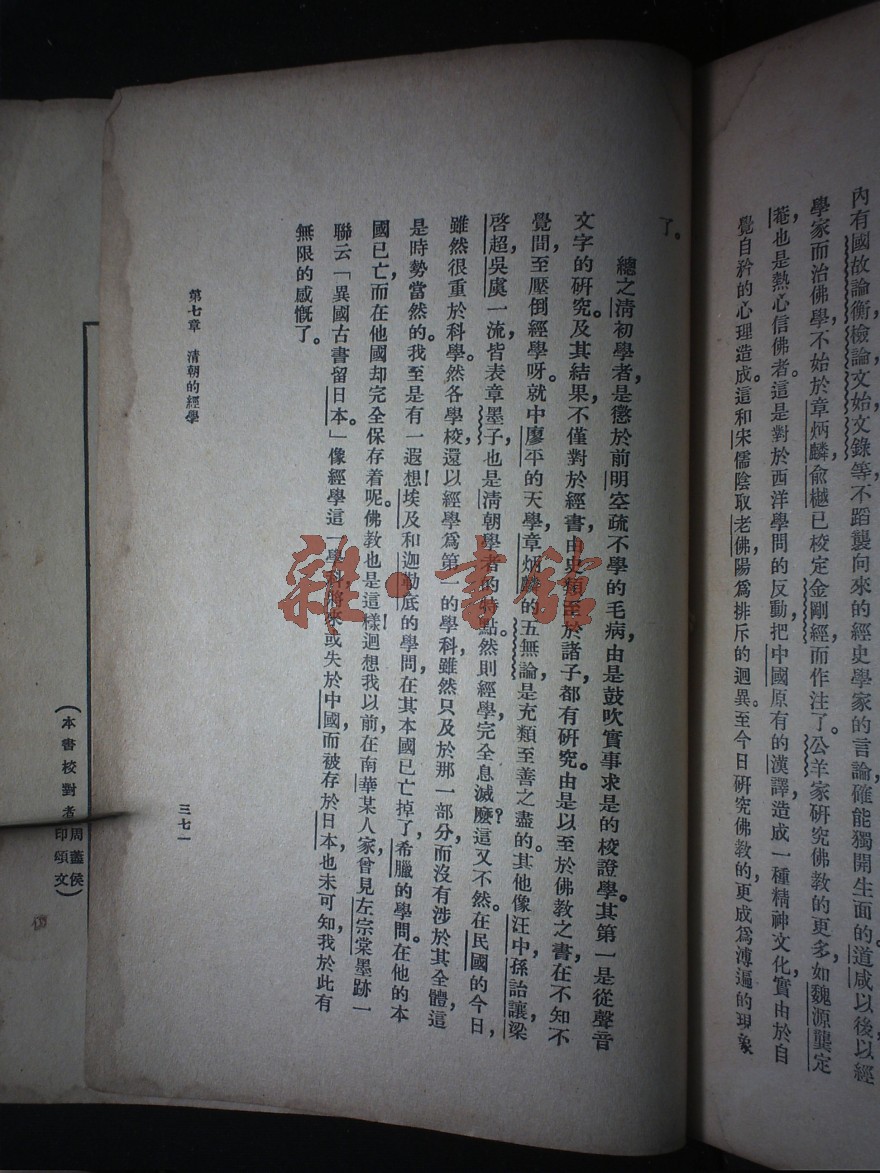 內有國故論衡檢論文始文錄等不蹈襲向來的經史學家的言論，確能獨開生面的。道咸以後以經
學家而治佛學，不始於章炳麟，俞樾已校定金剛經，而作注了。公羊家研究佛教的更多，如魏源龔定
菴，也是熱心信佛者。這是對於西洋學問的反動，把中國原有的漢譯造成一種精神文化，實由於自
覺自矜的心理造成。這和宋儒陰取老佛，陽爲排斥的迥異。至今日研究佛教的，更成爲溥遍的現象
了。
總之清初學者，是懲於前明空疏不學的毛病，由是鼓吹實事求是的校證學。其第一是從聲音
文字的研究。及其結果，不僅對於經書，由史類至於諸子都有研究。由是以至於佛教之書，在不知不
覺間，至壓倒經學呀。就中廖平的天學，章炳麟的五無論，是充類至善之盡的。其他像汪中，孫詒讓，梁
啓超，吳虞一流，皆表章墨子，也是清朝學者的特點。然則經學完全息滅麽？這又不然。在民國的今日，
雖然很重於科學。然各學校，還以經學爲第一的學科，雖然只及於那一部分，而沒有涉於其全體，這
是時勢當然的。我至是有一遐想！埃及和迦勒底的學問，在其本國已亡掉了，希臘的學問。在他的本
國已亡，而在他國却完全保存着呢。佛教也是這樣！迴想我以前，在南華某人家，曾見左宗棠墨跡一
聯云「異國古書留日本。」像經學這一學科，將來或失於中國，而被存於日本，也未可知，我於此有
無限的感慨了。
第七章　清朝的經學
三七一
（本書校對者周藎侯印頌文）
雜·書館